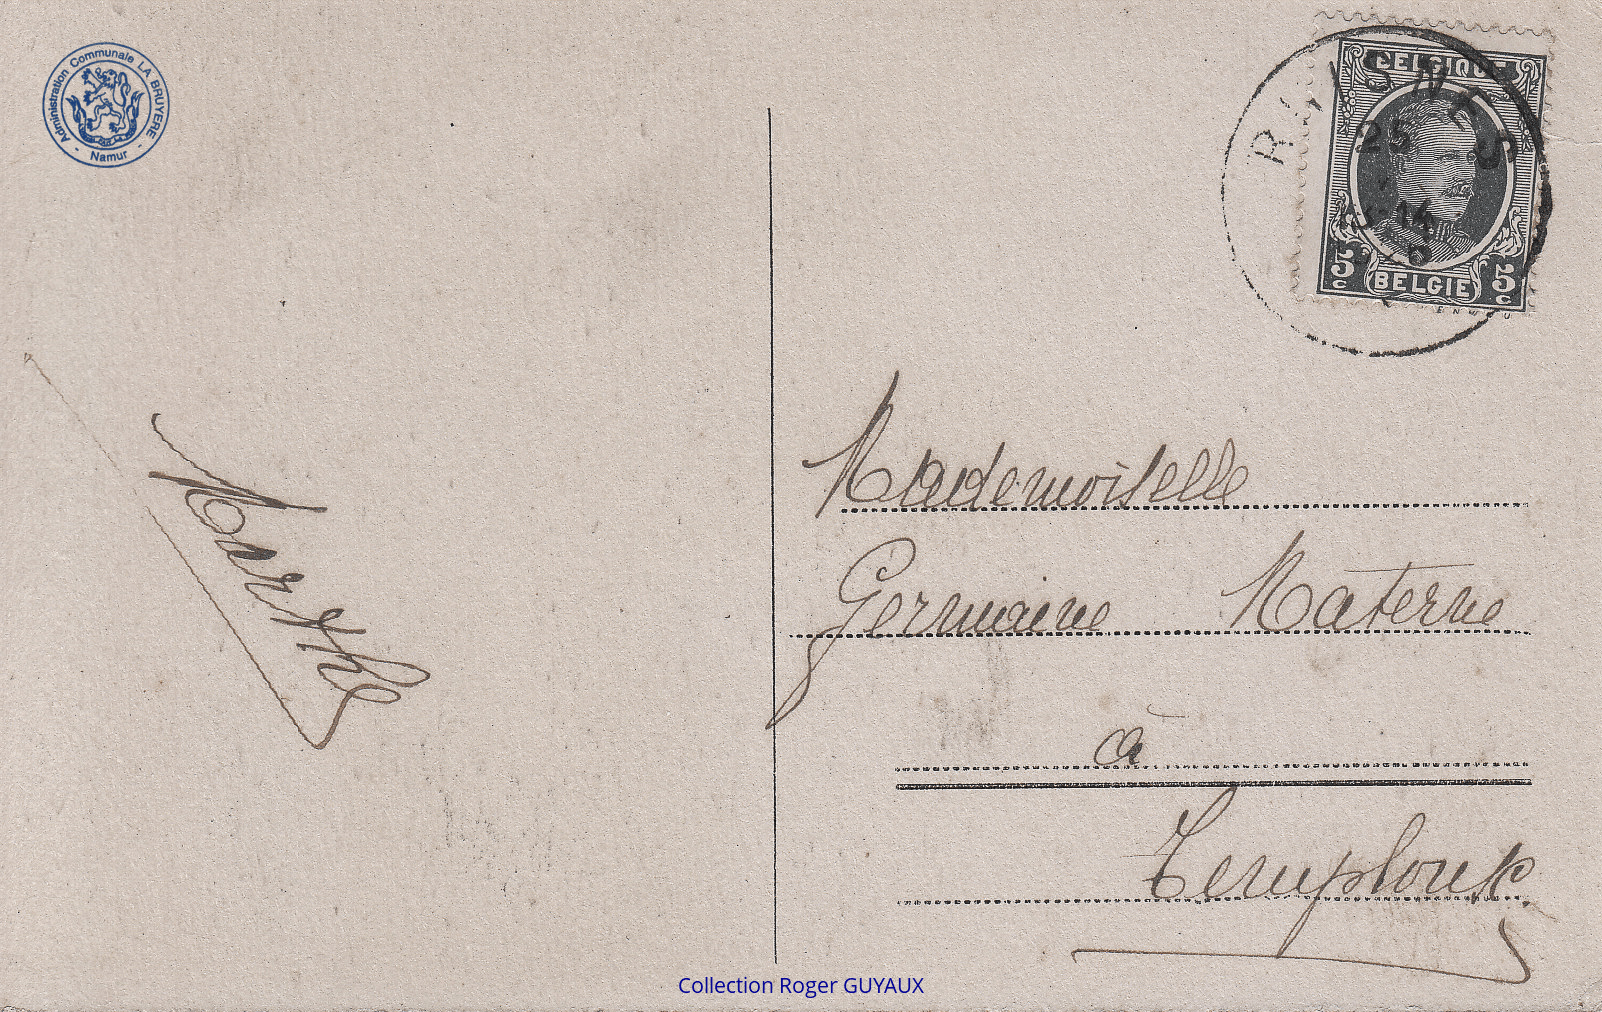 Administration Communale LA BRUYERE
- Namur -
RHISNES
25
14
BELGIQUE
5c BELGIE 5c
Marthe
Mademoiselle
Germaine Materne
à
Temploux
Collection Roger GUYAUX